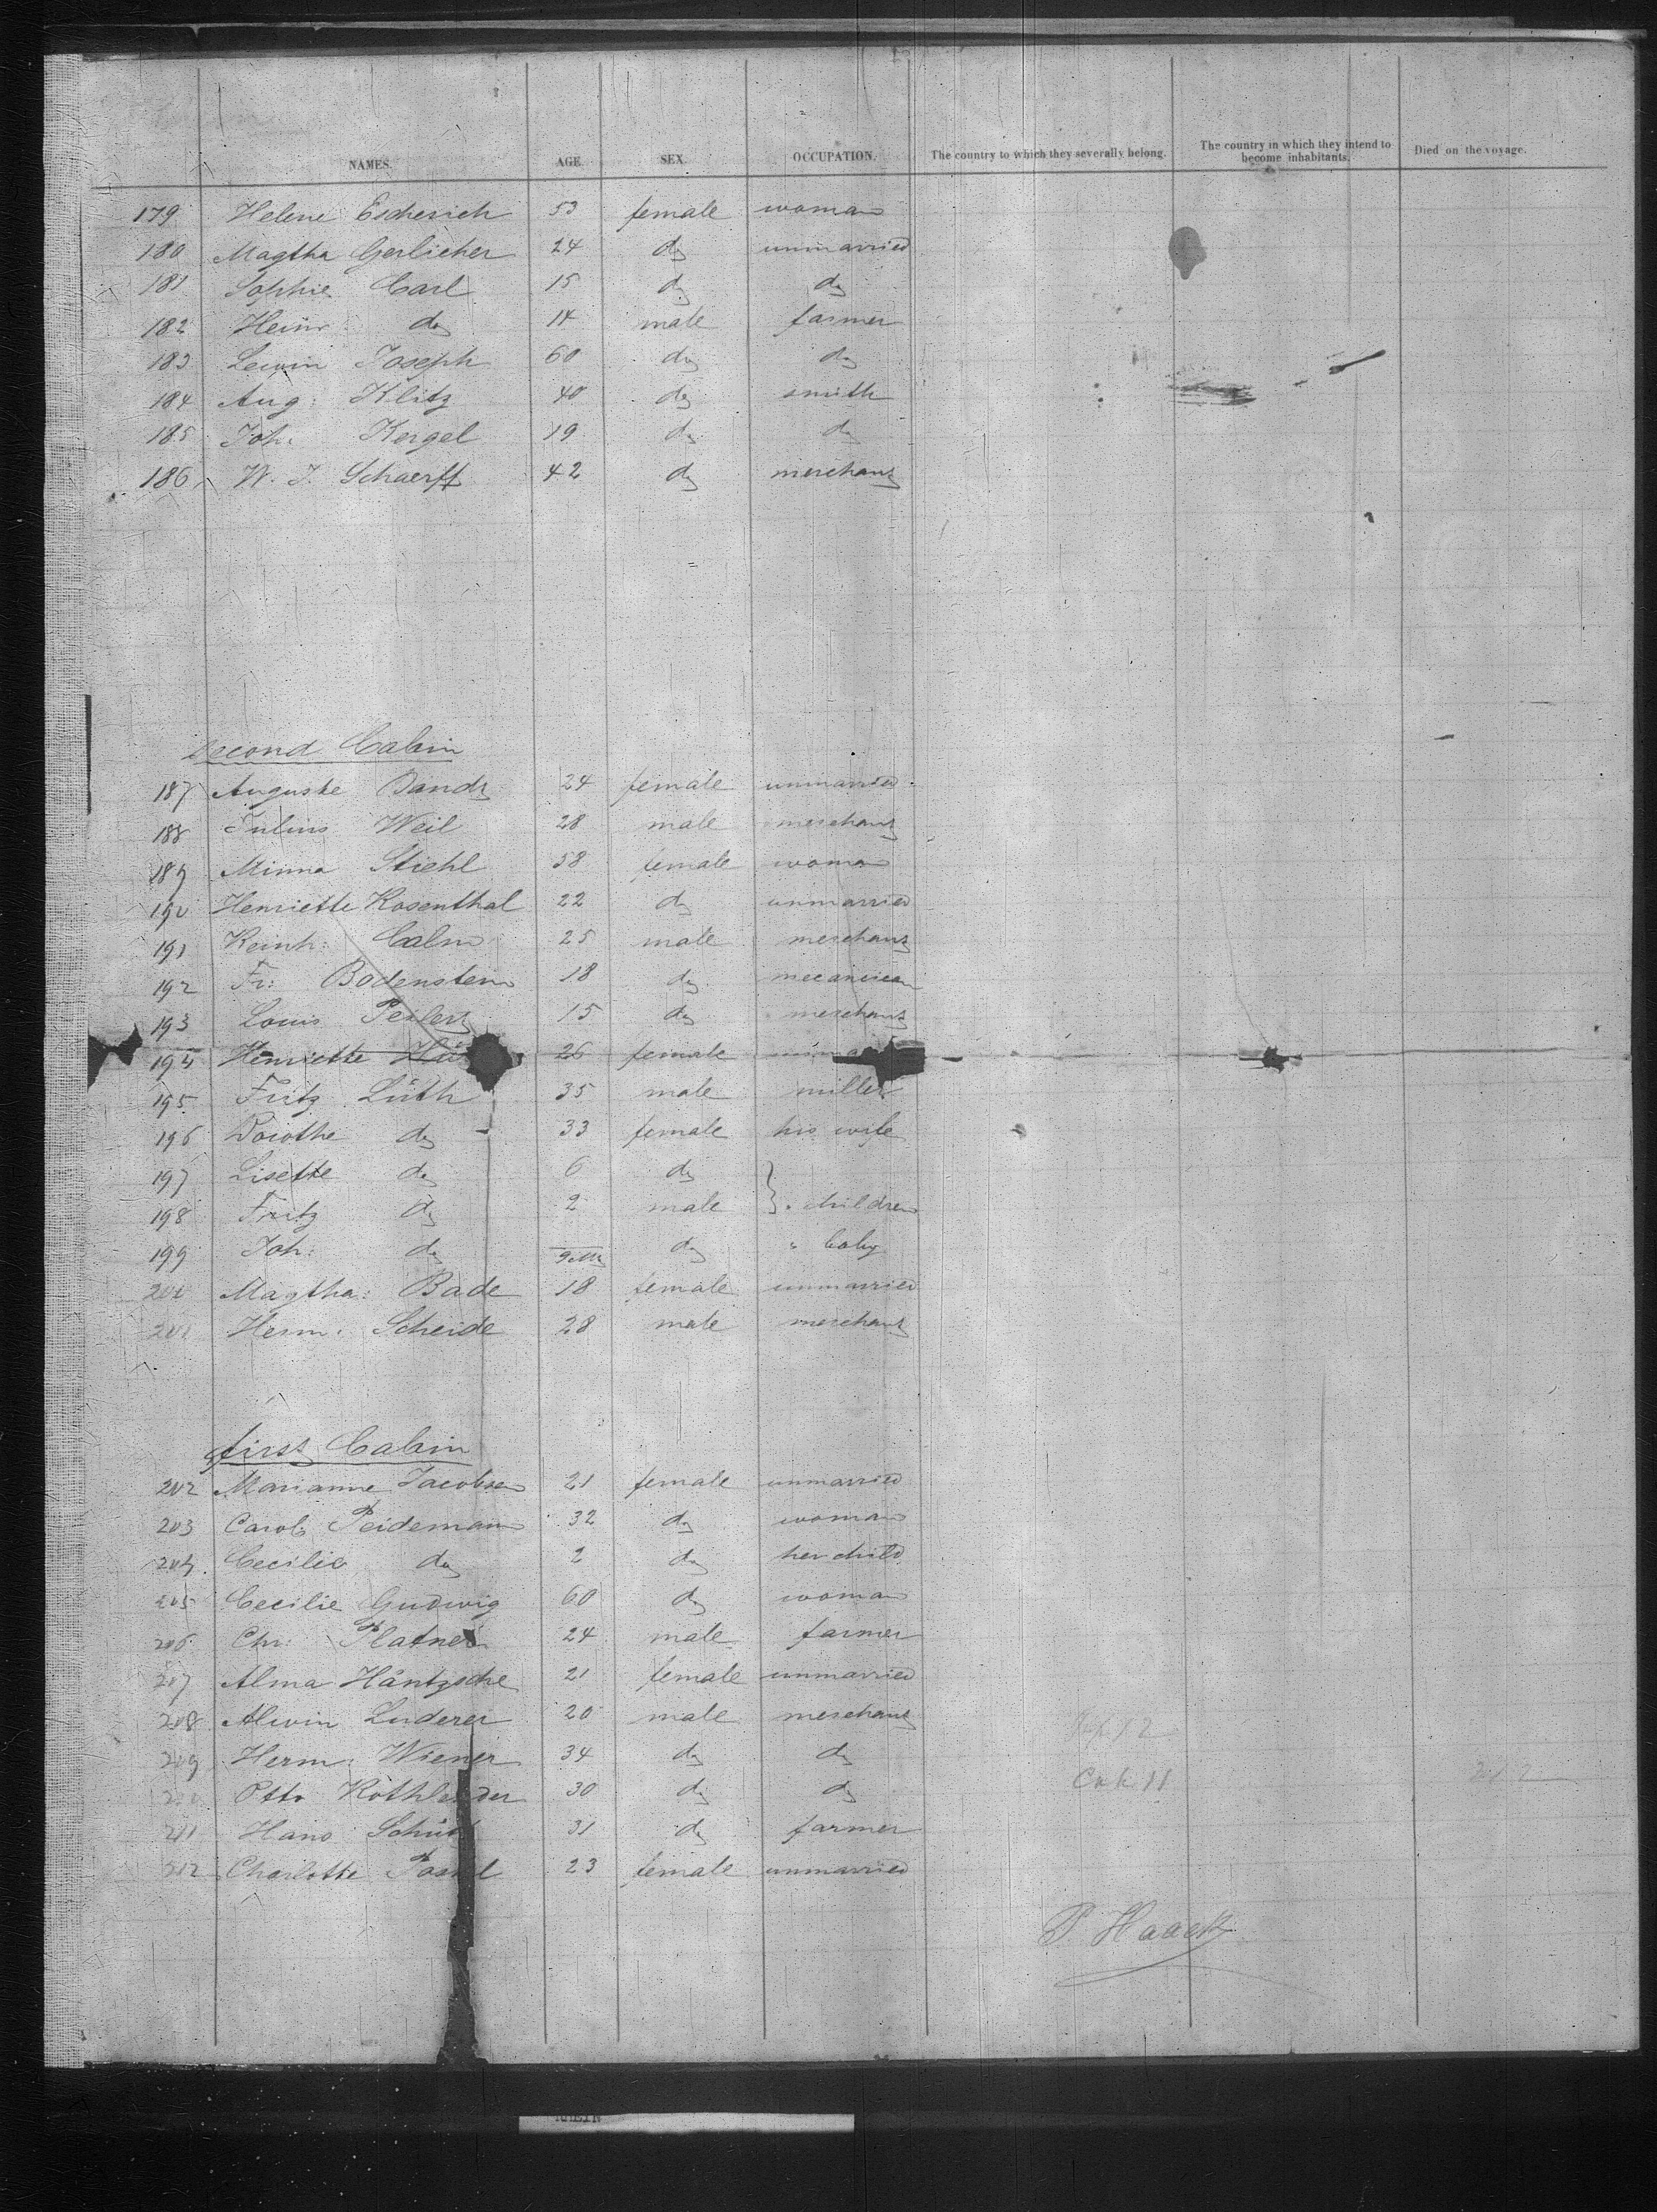 NAMES. AGE. SEX. OCCUPATION. The country to which they severally belong. The country in which they intend to become inhabitants. Died on the voyage.
179 Helene Escherich 53 female woman
180 Magtha Gerlicher 24 do unmarried
181 Sophie Carl 15 do do
182 Heinr do 14 male farmer
183 Lewin Joseph 60 do do
184 Aug: Klitz 40 do smith
185 Joh: Kergel 19 do do
186 W. J. Schaerff 42 do merchant
Second Cabin
187 Auguste 24 female unmarried
188 Julius Weil 28 male merchant
189 Minna Stiehl 58 female woman
190 Henriette Rosenthal 22 do unmarried
191 Reinh: Calm 25 male merchant
192 Fr: Bodenstein 18 do mecanican
193 Louis 15 do merchant
194 Henriette 26 female
195 Fritz Lüth 35 male miller
196 Dorothe do 33 female his wife
197 Lisette do 6 do
198 Fritz do 2 male } " children
199 Joh: do 9 M do " baby
200 Magtha: Bade 18 female unmarried
201 Herm: Scheide 28 male merchant
first Cabin
202 Marianne Jacobsen 21 female unmarried
203 Carol: Peidemann 32 do woman
204 Cecilie do 2 do her child
205 Cecilie Gudwig 60 do woman
206 Chr: Platner 24 male farmer
207 Alma Häntzsche 21 female unmarried
208 Alwin Luderer 20 male merchant
209 Herm: Wiener 34 do do
Otto 30 do do
211 Hans 31 do farmer
212 Charlotte 23 female unmarried
P. Haack